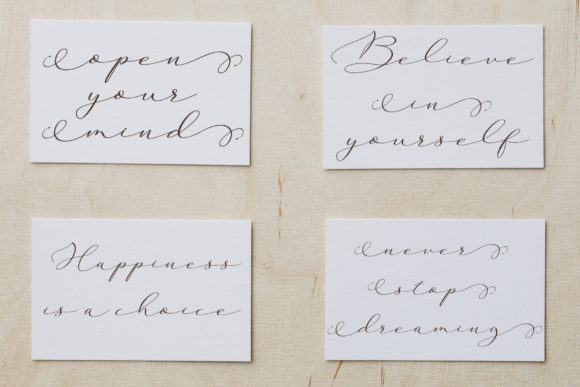 open
your
mind
Believe
in
yourself
Happiness
is a choice
never
stop
dreaming